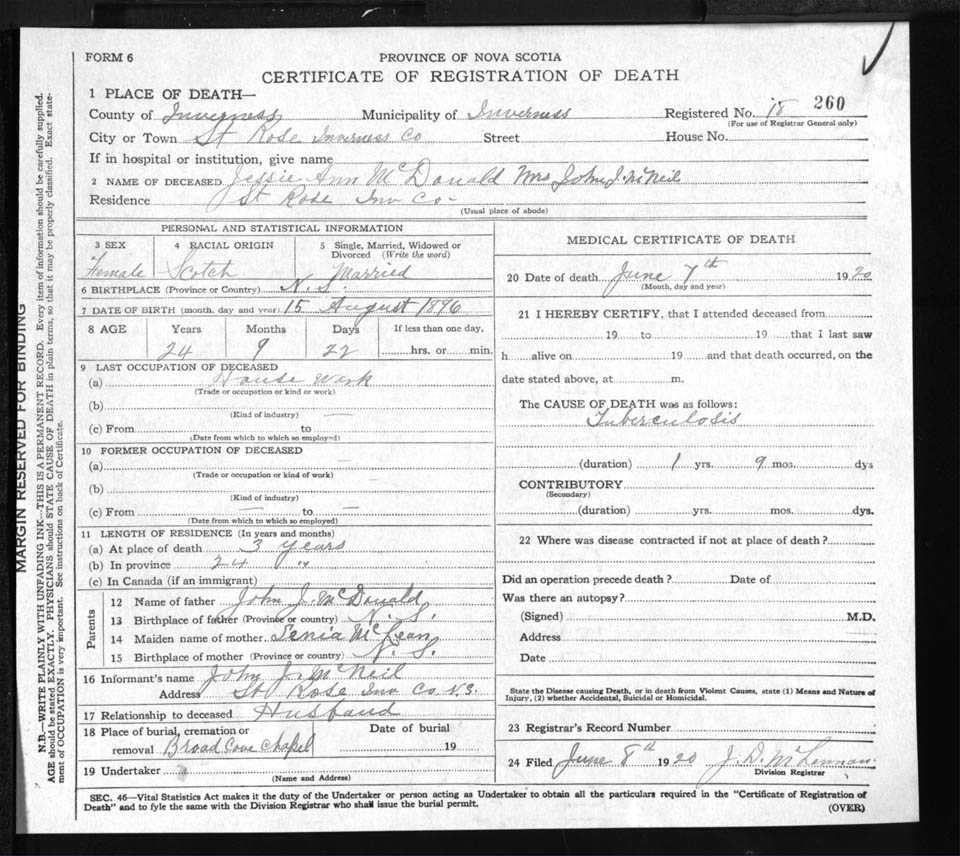 FORM 6
PROVINCE OF NOVA SCOTIA
CERTIFICATE OF REGISTRATION OF DEATH
1 PLACE OF DEATH—
County of Inverness Municipality of Inverness Registered No. 18 260
(For use of Registrar General only)
City or Town St Rose Inverness Co Street House No.
If in hospital or institution, give name
2 NAME OF DECEASED Jessie Ann McDonald Mrs John J. McNeil
Residence St Rose Inv Co-
(Usual place of abode)
PERSONAL AND STATISTICAL INFORMATION
3 SEX 4 RACIAL ORIGIN 5 Single, Married, Widowed or
Divorced (Write the word)
Female Scotch Married
6 BIRTHPLACE (Province or Country) N. S.
7 DATE OF BIRTH (month, day and year) 15 August 1896
8 AGE Years Months Days If less than one day,
24 9 22 hrs. or min.
9 LAST OCCUPATION OF DECEASED
(a) House Work
(Trade or occupation or kind or work)
(b) —
(Kind of industry)
(c) From to
(Date from which to which so employed)
10 FORMER OCCUPATION OF DECEASED
(a) —
(Trade or occupation or kind of work)
(b) —
(Kind of industry)
(c) From — to —
(Date from which to which so employed)
11 LENGTH OF RESIDENCE (In years and months)
(a) At place of death 3 years
(b) In province 24 "
(c) In Canada (if an immigrant)
Parents
12 Name of father John J. McDonald
13 Birthplace of father (Province or country) N. S.
14 Maiden name of mother McLean
15 Birthplace of mother (Province or country) N. S.
16 Informant's name John J. McNeil
Address St Rose Inv Co N.S.
17 Relationship to deceased Husband
18 Place of burial, cremation or Date of burial
removal Broad Cove Chapel 19
19 Undertaker
(Name and Address)
MEDICAL CERTIFICATE OF DEATH
20 Date of death June 7th 1920
(Month, day and year)
21 I HEREBY CERTIFY, that I attended deceased from
19 to 19 that I last saw
h alive on 19 and that death occurred, on the
date stated above, at m.
The CAUSE OF DEATH was as follows:
Tuberculosis
(duration) 1 yrs. 9 mos. dys
CONTRIBUTORY
(Secondary)
(duration) yrs. mos. dys.
22 Where was disease contracted if not at place of death ?
Did an operation precede death ? Date of
Was there an autopsy?
(Signed) M.D.
Address
Date
State the Disease causing Death, or in death from Violent Causes, state (1) Means and Nature of
Injury, (2) whether Accidental, Suicidal or Homicidal.
23 Registrar's Record Number
24 Filed June 8th 1920 J. D. McLennan
Division Registrar
SEC. 46—Vital Statistics Act makes it the duty of the Undertaker or person acting as Undertaker to obtain all the particulars required in the "Certificate of Registration of
Death" and to fyle the same with the Division Registrar who shall issue the burial permit.
(OVER)
MARGIN RESERVED FOR BINDING
N.B.—WRITE PLAINLY WITH UNFADING INK—THIS IS A PERMANENT RECORD. Every item of information should be carefully supplied.
AGE should be stated EXACTLY. PHYSICIANS should STATE CAUSE OF DEATH in plain terms, so that it may be properly classified. Exact state-
ment of OCCUPATION is very important. See instructions on back of Certificate.